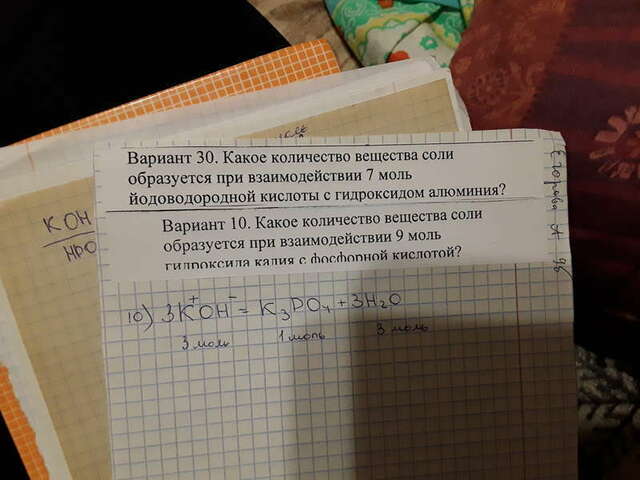 Вариант 30. Какое количество вещества соли
образуется при взаимодействии 7 моль
йодоводородной кислоты с гидроксидом алюминия?
Вариант 10. Какое количество вещества соли
образуется при взаимодействии 9 моль
гидроксида калия с фосфорной кислотой?
Егорова А 9б
KOH
HPO
10) 3K⁺OH⁻ = K₃PO₄ + 3H₂O
3 моль 1 моль 3 моль